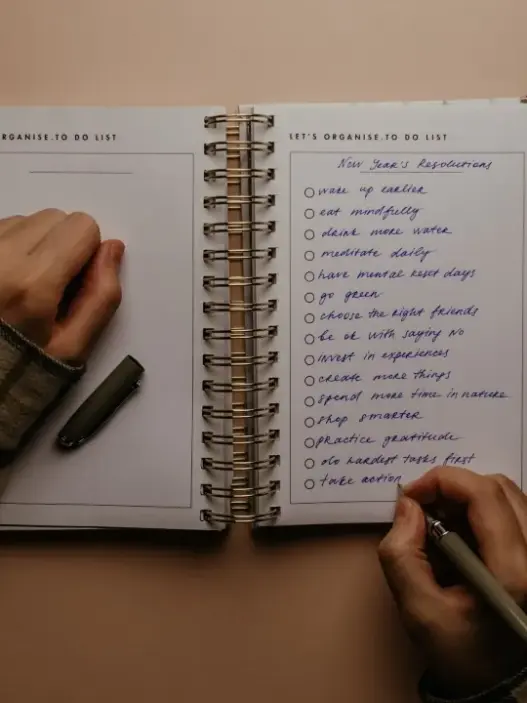 RGANISE.TO DO LIST
LET'S ORGANISE.TO DO LIST
New Year's Resolutions
wake up earlier
eat mindfully
drink more water
meditate daily
have mental reset days
go green
choose the right friends
be ok with saying no
invest in experiences
create more things
spend more time in nature
shop smarter
practice gratitude
do hardest tasks first
take action